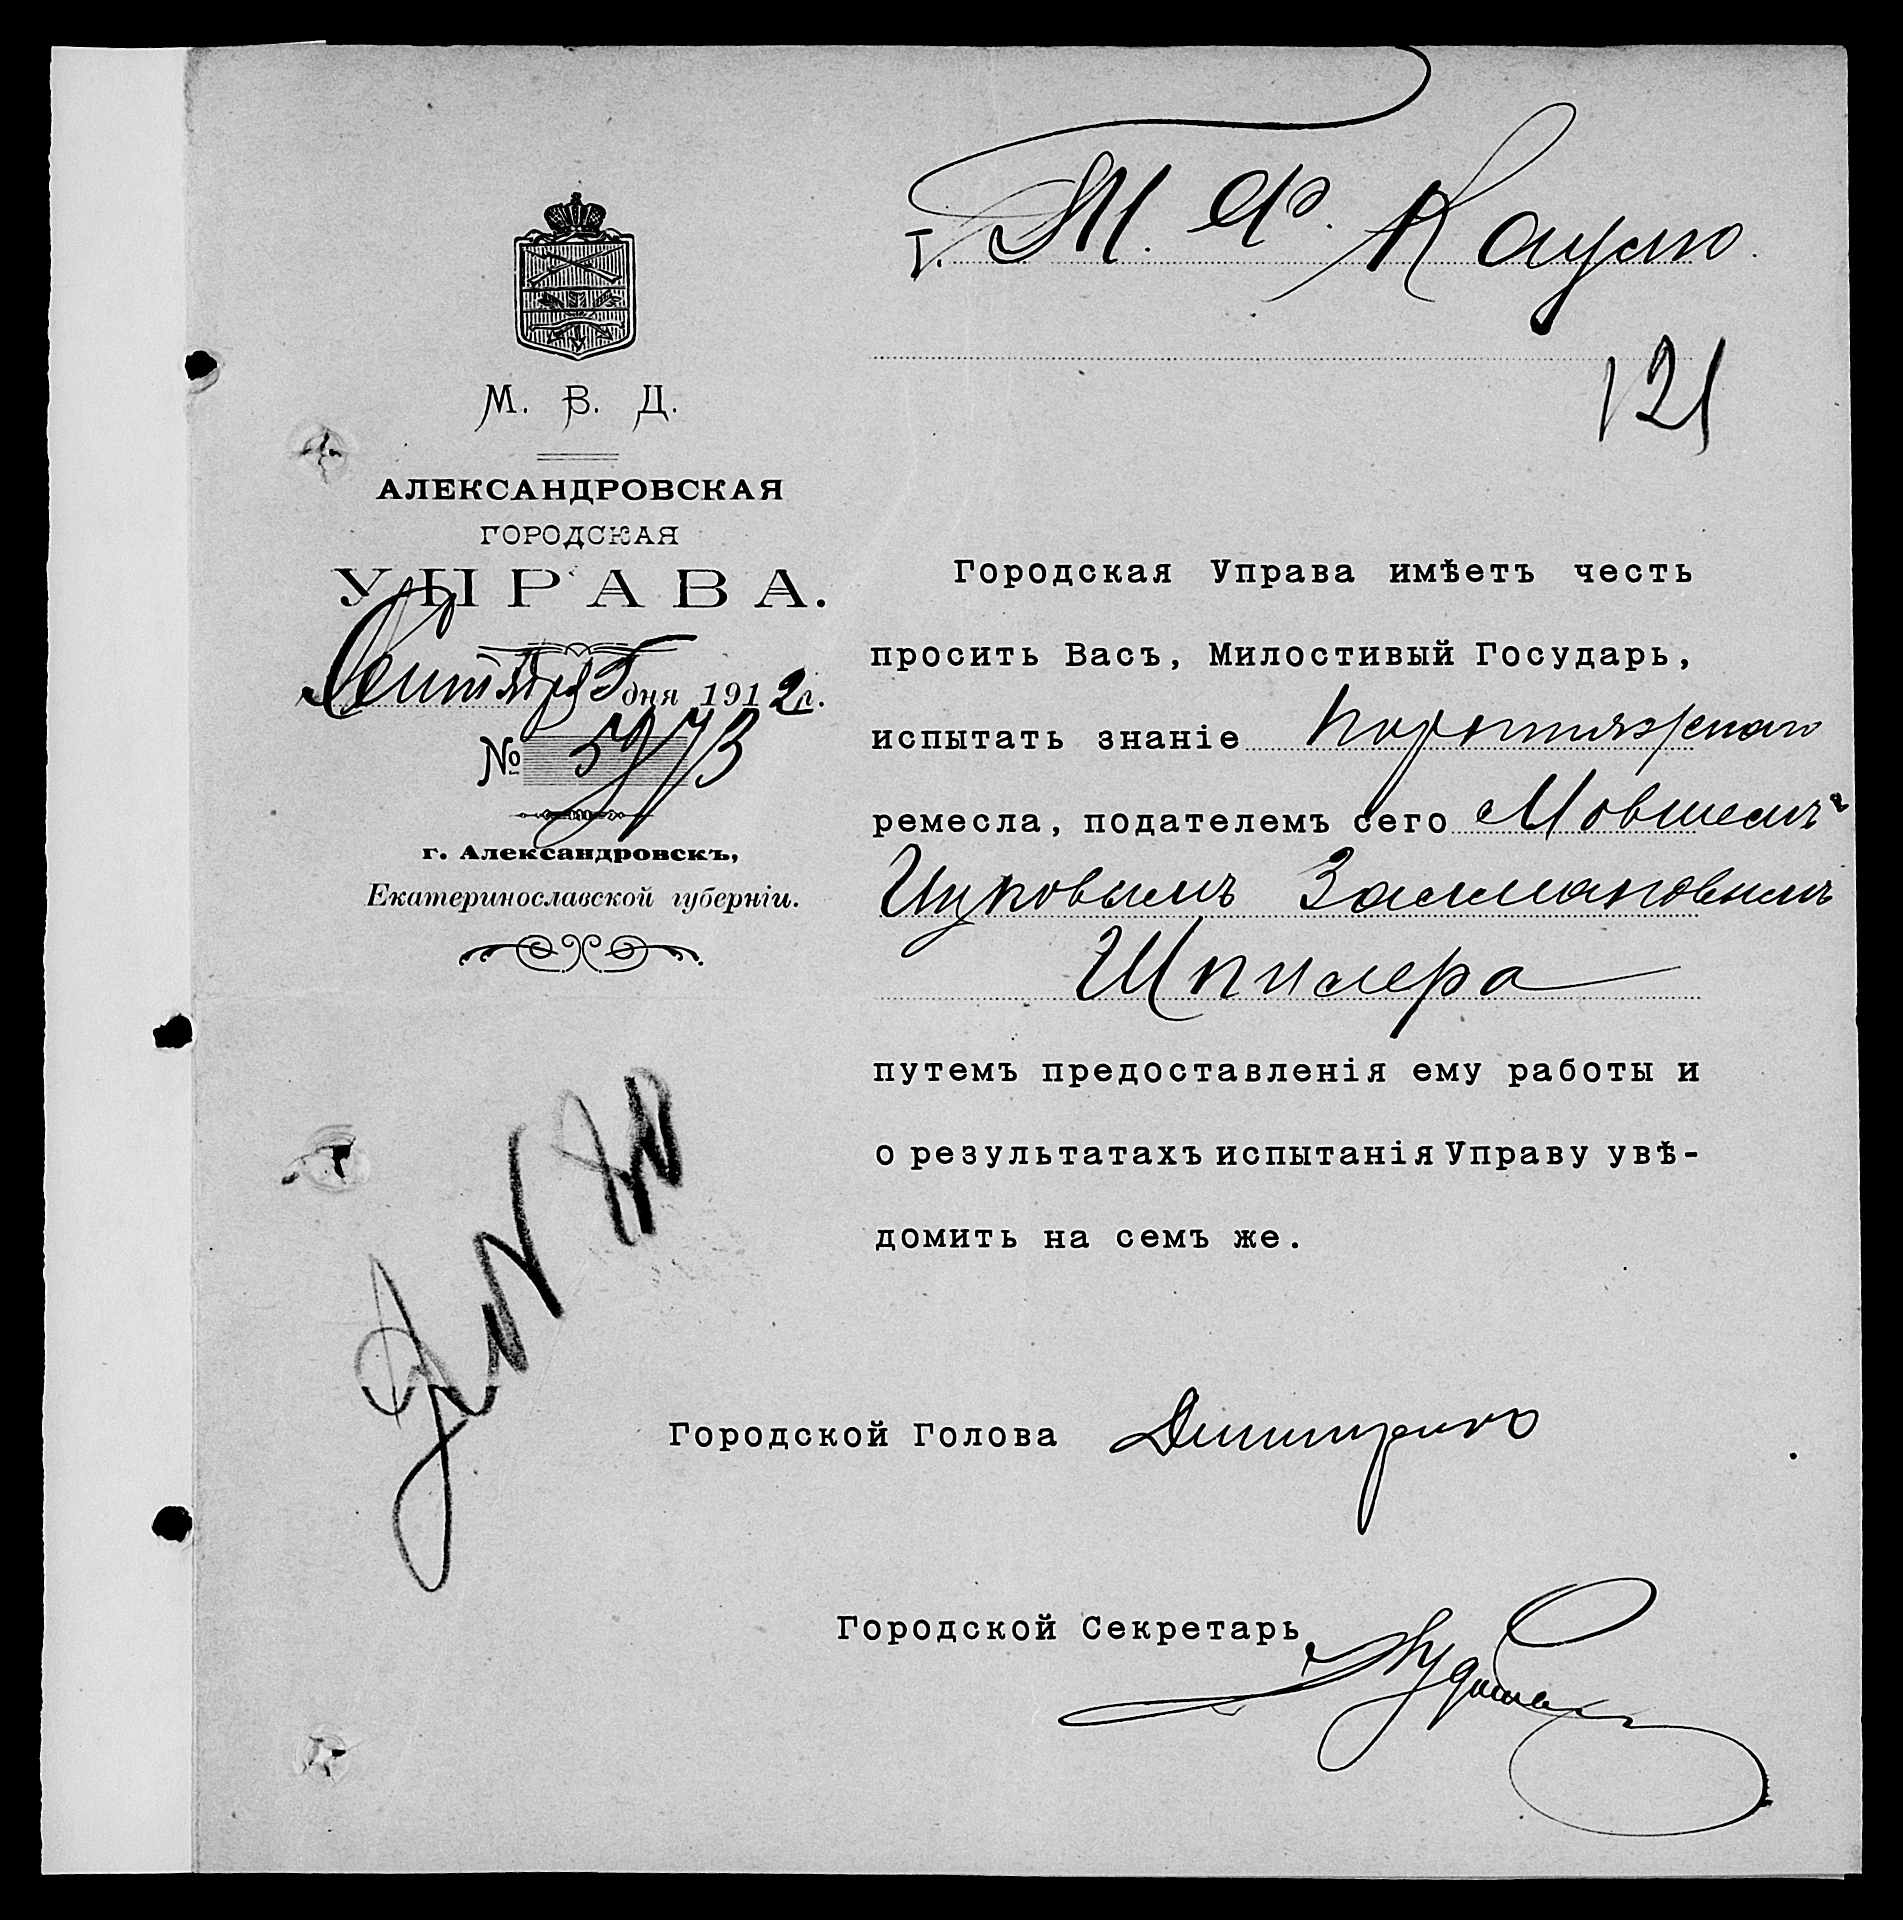 М. В. Д.
АЛЕКСАНДРОВСКАЯ
ГОРОДСКАЯ
УПРАВА.
Сентября 5 дня 1912 г.
№
г. Александровскъ,
Екатеринославской губерніи.
Г. М. Ф.
121
Городская Управа имѣетъ честь
просить Васъ, Милостивый Государь,
испытать знаніе портняжскаго
ремесла, подателемъ сего Мовшемъ
Ицковымъ Залмановымъ
Шпилера
путемъ предоставленія ему работы и
о результатахъ испытанія Управу увѣ-
домить на семъ же.
Городской Голова
Городской Секретарь